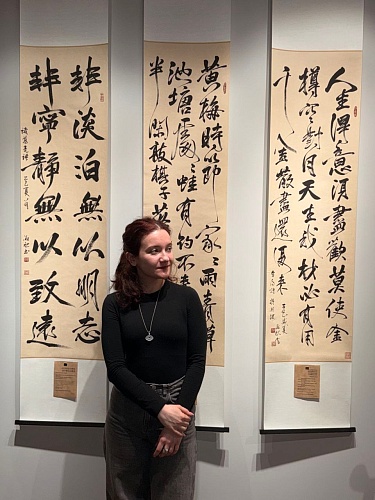 人生得意須盡歡莫使金
樽空對月天生我材必有用
千金散盡還復來
黃梅時節家〻雨青草
池塘處〻蛙有約不來
半閑敲棋子落
非淡泊無以明志
非寧靜無以致遠
諸葛亮語